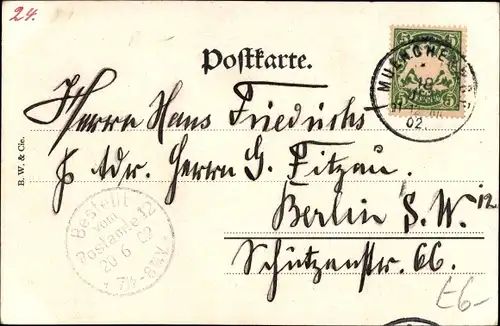 24.
Postkarte.
MUENCHEN
18
02.
Herrn Hans Friedrichs
p Adr. Herrn G. Fitzau.
Berlin S. W. 12
Schützenstr. 66.
B. W. & Cie.
Bestellt
vom
Postamte 12
20 6 02
7½-8¾V.
E6-